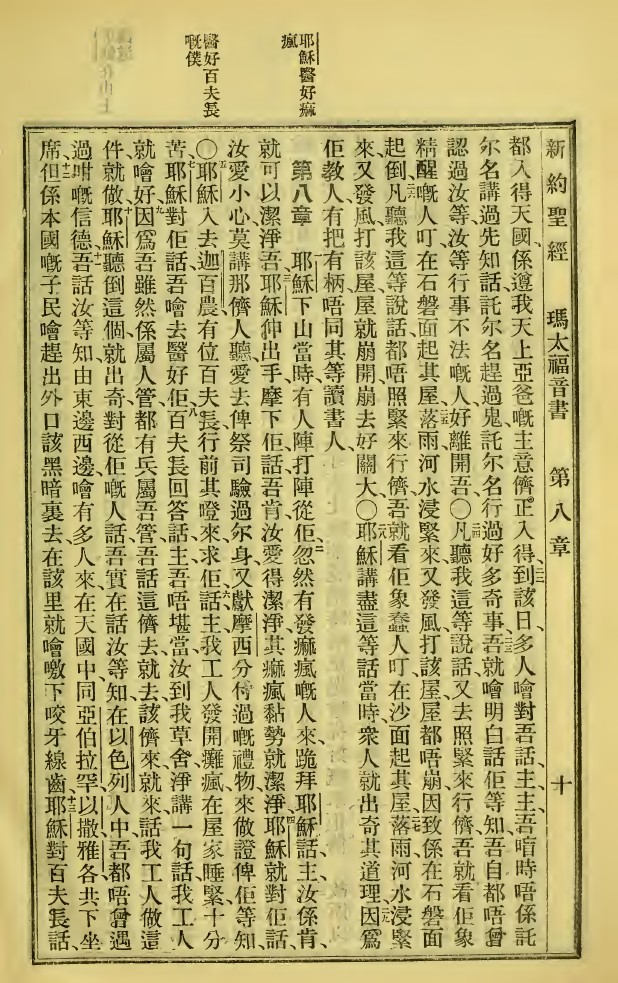 耶穌醫好痲
瘋
醫好百夫長
嘅僕
新約聖經 瑪太福音書 第八章 十
都入得天國、係遵我天上亞爸嘅主意儕正入得、到該日、多人噲對吾話、主、主、吾喧時唔係託
尔名講過先知話、託尔名趕過鬼、託尔名行過好多奇事、吾就噲明白話佢等知、吾自都唔曾
認過汝等、汝等行事不法嘅人、好離開吾、〇凡聽我這等說話、又去照緊來行儕、吾就看佢象
精醒嘅人、叮在石磐面起其屋、落雨、河水浸緊來、又發風打該屋、屋都唔崩、因致係在石磐面
起倒、凡聽我這等說話、都唔照緊來行儕、吾就看佢象蠢人、叮在沙面起其屋、落雨、河水浸緊
來、又發風打該屋、屋就崩開、崩去好關大、〇耶穌講盡這等話當時、衆人就出奇其道理、因爲
佢教人、有把有柄、唔同其等讀書人、
第八章 耶穌下山當時、有人陣打陣從佢、忽然有發痲瘋嘅人來跪拜耶穌話、主、汝係肯、
就可以潔淨吾、耶穌伸出手摩下佢話、吾肯、汝愛得潔淨、其痲瘋黏勢就潔淨、耶穌就對佢話、
汝愛小心莫講那儕人聽、愛去俾祭司驗過尔身、又獻摩西分付過嘅禮物、來做證俾佢等知、
〇耶穌入去迦百農、有位百夫長行前其磴來求佢話、主、我工人發開癱瘋、在屋家睡緊、十分
苦、耶穌對佢話、吾噲去醫好佢、百夫長回答話、主、吾唔堪當汝到我草舍、淨講一句話、我工人
就噲好、因爲吾雖然係屬人管、都有兵屬吾管、吾話這儕去就去、該儕來就來、話我工人做這
件就做、耶穌聽倒這個、就出奇、對從佢嘅人話、吾實在話汝等知、在以色列人中、吾都唔曾遇
過咁嘅信德、吾話汝等知、由東邊西邊噲有多人來、在天國中、同亞伯拉罕、以撒、雅各、共下坐
席、但係本國嘅子民噲趕出外口該黑暗裏去、在該里就噲噭下咬牙線齒、耶穌對百夫長話、